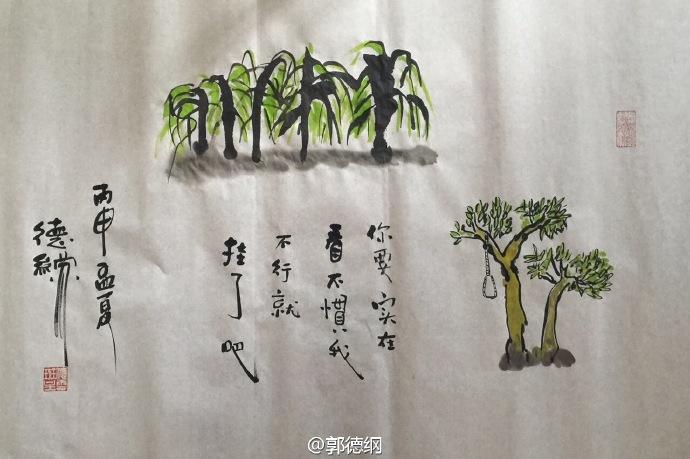 你要实在
看不惯我
不行就
挂了吧
丙申孟夏
德纲
@郭德纲